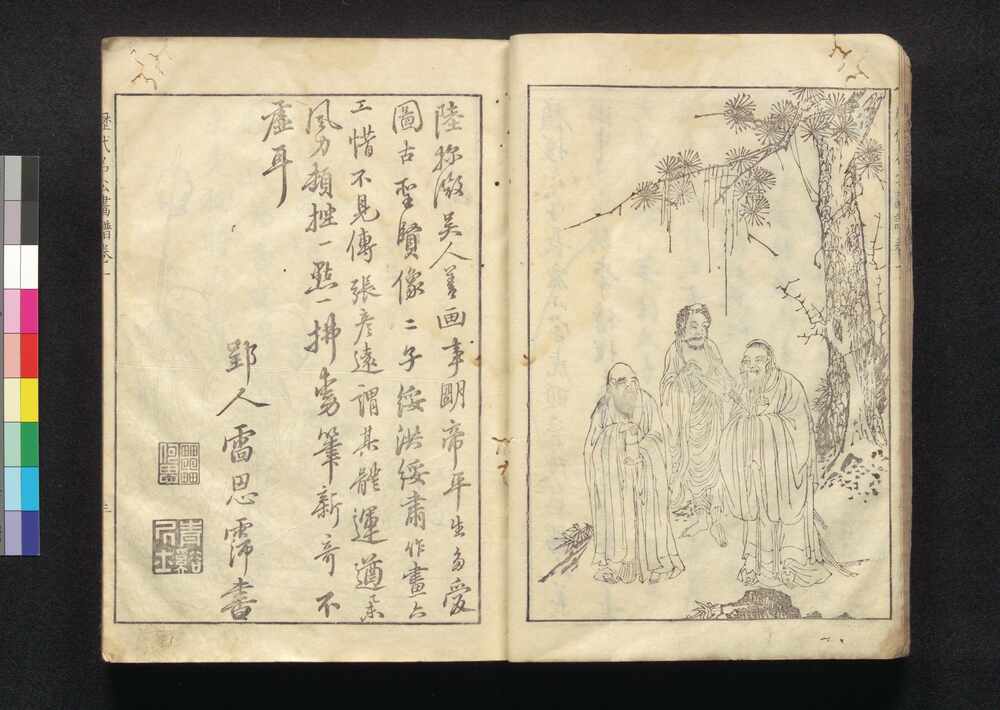 陸探微吳人善画事明帝平生多愛
圖古聖賢像二子綏洪綏肅作畫六
工惜不見傳張彦遠謂其體運遒舉
風力頓挫一點一拂動筆新奇不
虛耳
郢人雷思霈書
歷代名公畫譜卷一
三